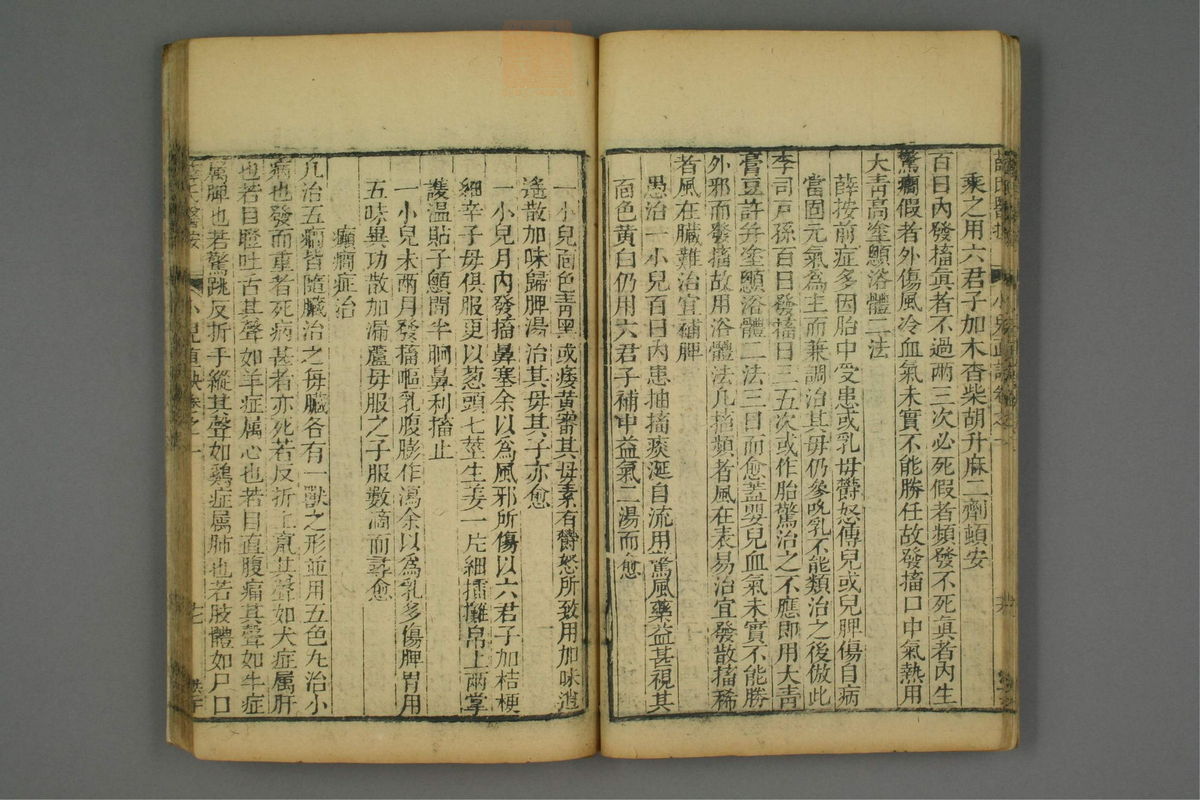 乘之用六君子加木香柴胡升麻二劑頓安
百日內發搐眞者不過兩三次必死假者頻發不死眞者內生
驚癇假者外傷風冷血氣未實不能勝任故發搐口中氣熱用
大靑高塗顖浴體二法
薛按前症多因胎中受患或乳母欝怒傳兒或兒脾傷自病
當固元氣為主而兼調治其母仍參吮乳不能類治之後倣此
李司戸孫百日發搐日三五次或作胎驚治之不應即用大靑
膏豆許幷塗顖浴體二法三日而愈葢嬰兒血氣未實不能勝
外邪而發搐故用浴體法凡搐頻者風在表易治宜發散搐稀
者風在臟難治宜補脾
愚治一小兒百日內患抽搐痰涎自流用驚風藥益甚視其
面色黃白仍用六君子補中益氣二湯而愈
一小兒面色靑黑或痿黃審其母素有欝怒所致用加味逍
遙散加味歸脾湯治其母其子亦愈
一小兒月內發搐鼻塞余以為風邪所傷以六君子加桔梗
細辛子母俱服更以葱頭七莖生姜一片細擂攤帛上兩掌
護溫貼子顖間半晌鼻利搐止
一小兒未兩月發搐嘔乳腹膨作瀉余以為乳多傷脾胃用
五味異功散加漏蘆母服之子服數滴而尋愈
癲癇症治
凡治五癇皆隨臟治之每臟各有一獸之形並用五色丸治小
病也發而重者死病甚者亦死若反折上竄其聲如犬症属肝
也若目瞪吐舌其聲如羊症属心也若目直腹痛其聲如牛症
属脾也若驚跳反折手縱其聲如鷄症属肺也若肢體如尸口
小兒直訣卷之一